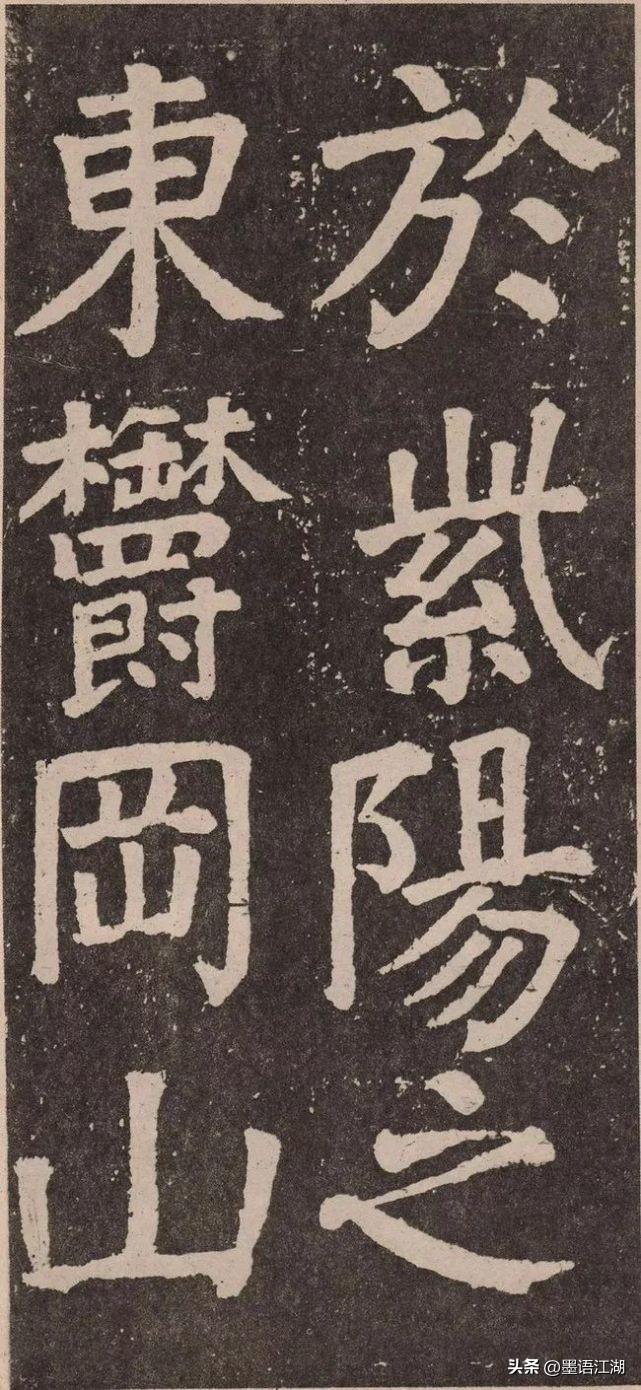 於紫陽之
東欝岡山
头条 @墨语江湖